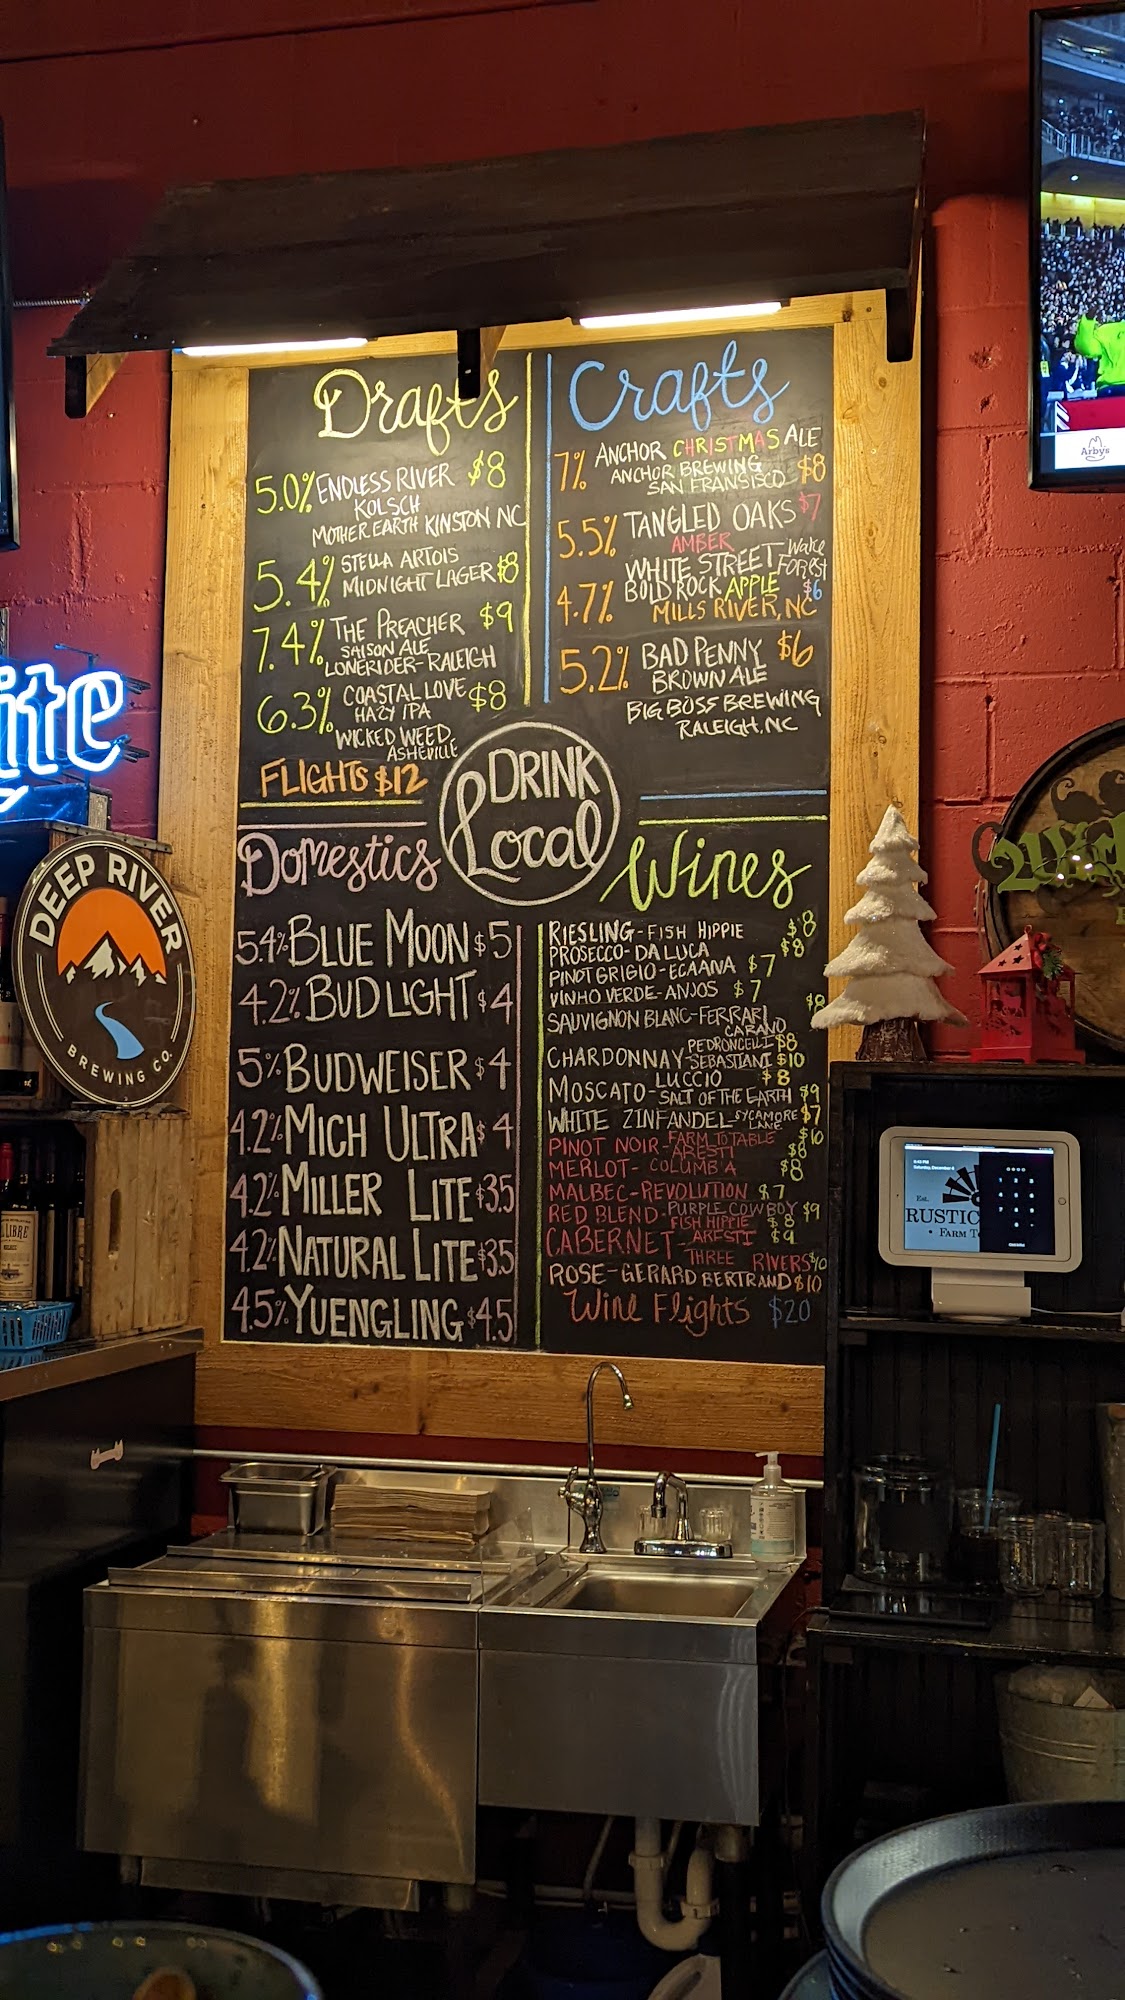 Drafts
5.0% ENDLESS RIVER $8
KOLSCH
MOTHER EARTH KINSTON NC
5.4% STELLA ARTOIS
MIDNIGHT LAGER $8
7.4% THE PREACHER $9
SAISON ALE
LONERIDER-RALEIGH
6.3% COASTAL LOVE $8
HAZY IPA
WICKED WEED
ASHEVILLE
FLIGHTS $12
Crafts
7% ANCHOR CHRISTMAS ALE
ANCHOR BREWING $8
SAN FRANSISCO
5.5% TANGLED OAKS $7
AMBER
WHITE STREET Wake
FOREST
4.7% BOLD ROCK APPLE $6
MILLS RIVER, NC
5.2% BAD PENNY $6
BROWN ALE
BIG BOSS BREWING
RALEIGH, NC
DRINK
Local
Domestics
5.4% BLUE MOON $5
4.2% BUD LIGHT $4
5% BUDWEISER $4
4.2% MICH ULTRA $4
4.2% MILLER LITE $3.5
4.2% NATURAL LITE $3.5
4.5% YUENGLING $4.5
Wines
RIESLING-FISH HIPPIE $8
PROSECCO-DA LUCA $8
PINOT GRIGIO-ECAANA $7
VINHO VERDE-ANJOS $7
SAUVIGNON BLANC-FERRARI $8
CARANO
PEDRONCELLI $8
CHARDONNAY-SEBASTIANI $10
LUCCIO $8
MOSCATO-SALT OF THE EARTH $9
WHITE ZINFANDEL-SYCAMORE $7
LANE
PINOT NOIR-FARM TO TABLE $10
ARESTI $6
MERLOT-COLUMBIA $8
MALBEC-REVOLUTION $7
RED BLEND-PURPLE COWBOY $9
FISH HIPPIE $8
CABERNET-ARESTI $9
THREE RIVERS $10
ROSE-GERARD BERTRAND $10
Wine Flights $20
ite
DEEP RIVER
BREWING CO.
LIBRE
Arby's
EST.
RUSTIC
• FARM T